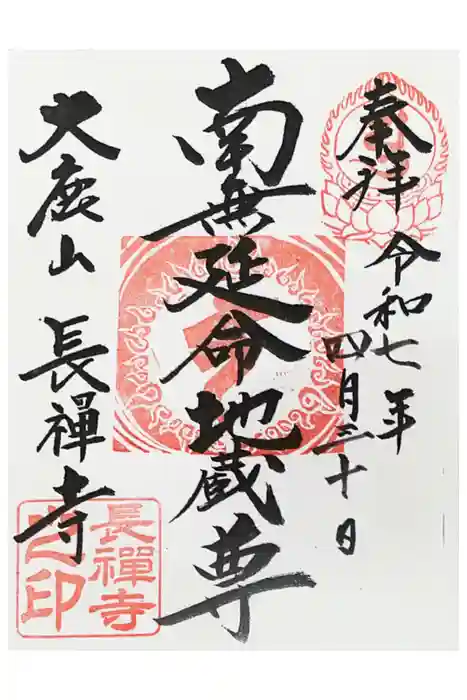 奉拝
令和七年
四月三十日
南無延命地蔵尊
大鹿山 長禅寺
長禪寺
之印